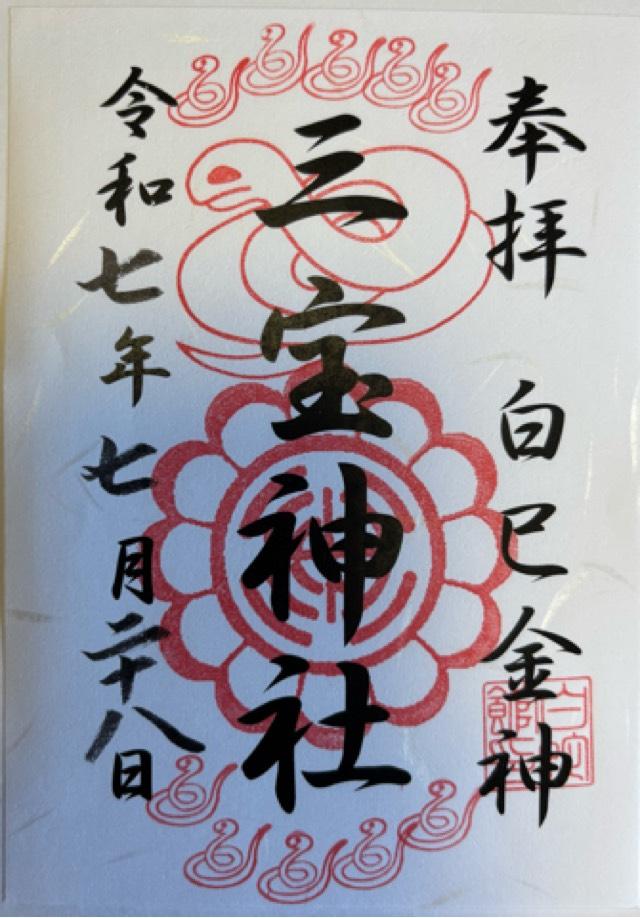 奉拝 白巳金神
三宝神社
令和七年七月二十八日